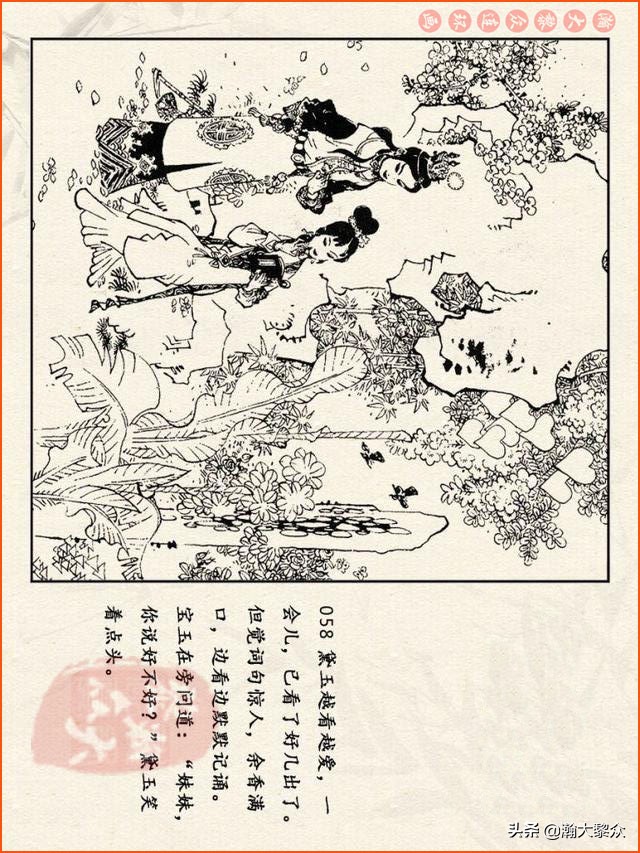 瀚大黎众连环画
058 黛玉越看越爱，一
会儿，已看了好几出了。
但觉词句惊人，余香满
口，边看边默默记诵。
宝玉在旁问道：“妹妹，
你说好不好？”黛玉笑
着点头。
头条 @瀚大黎众